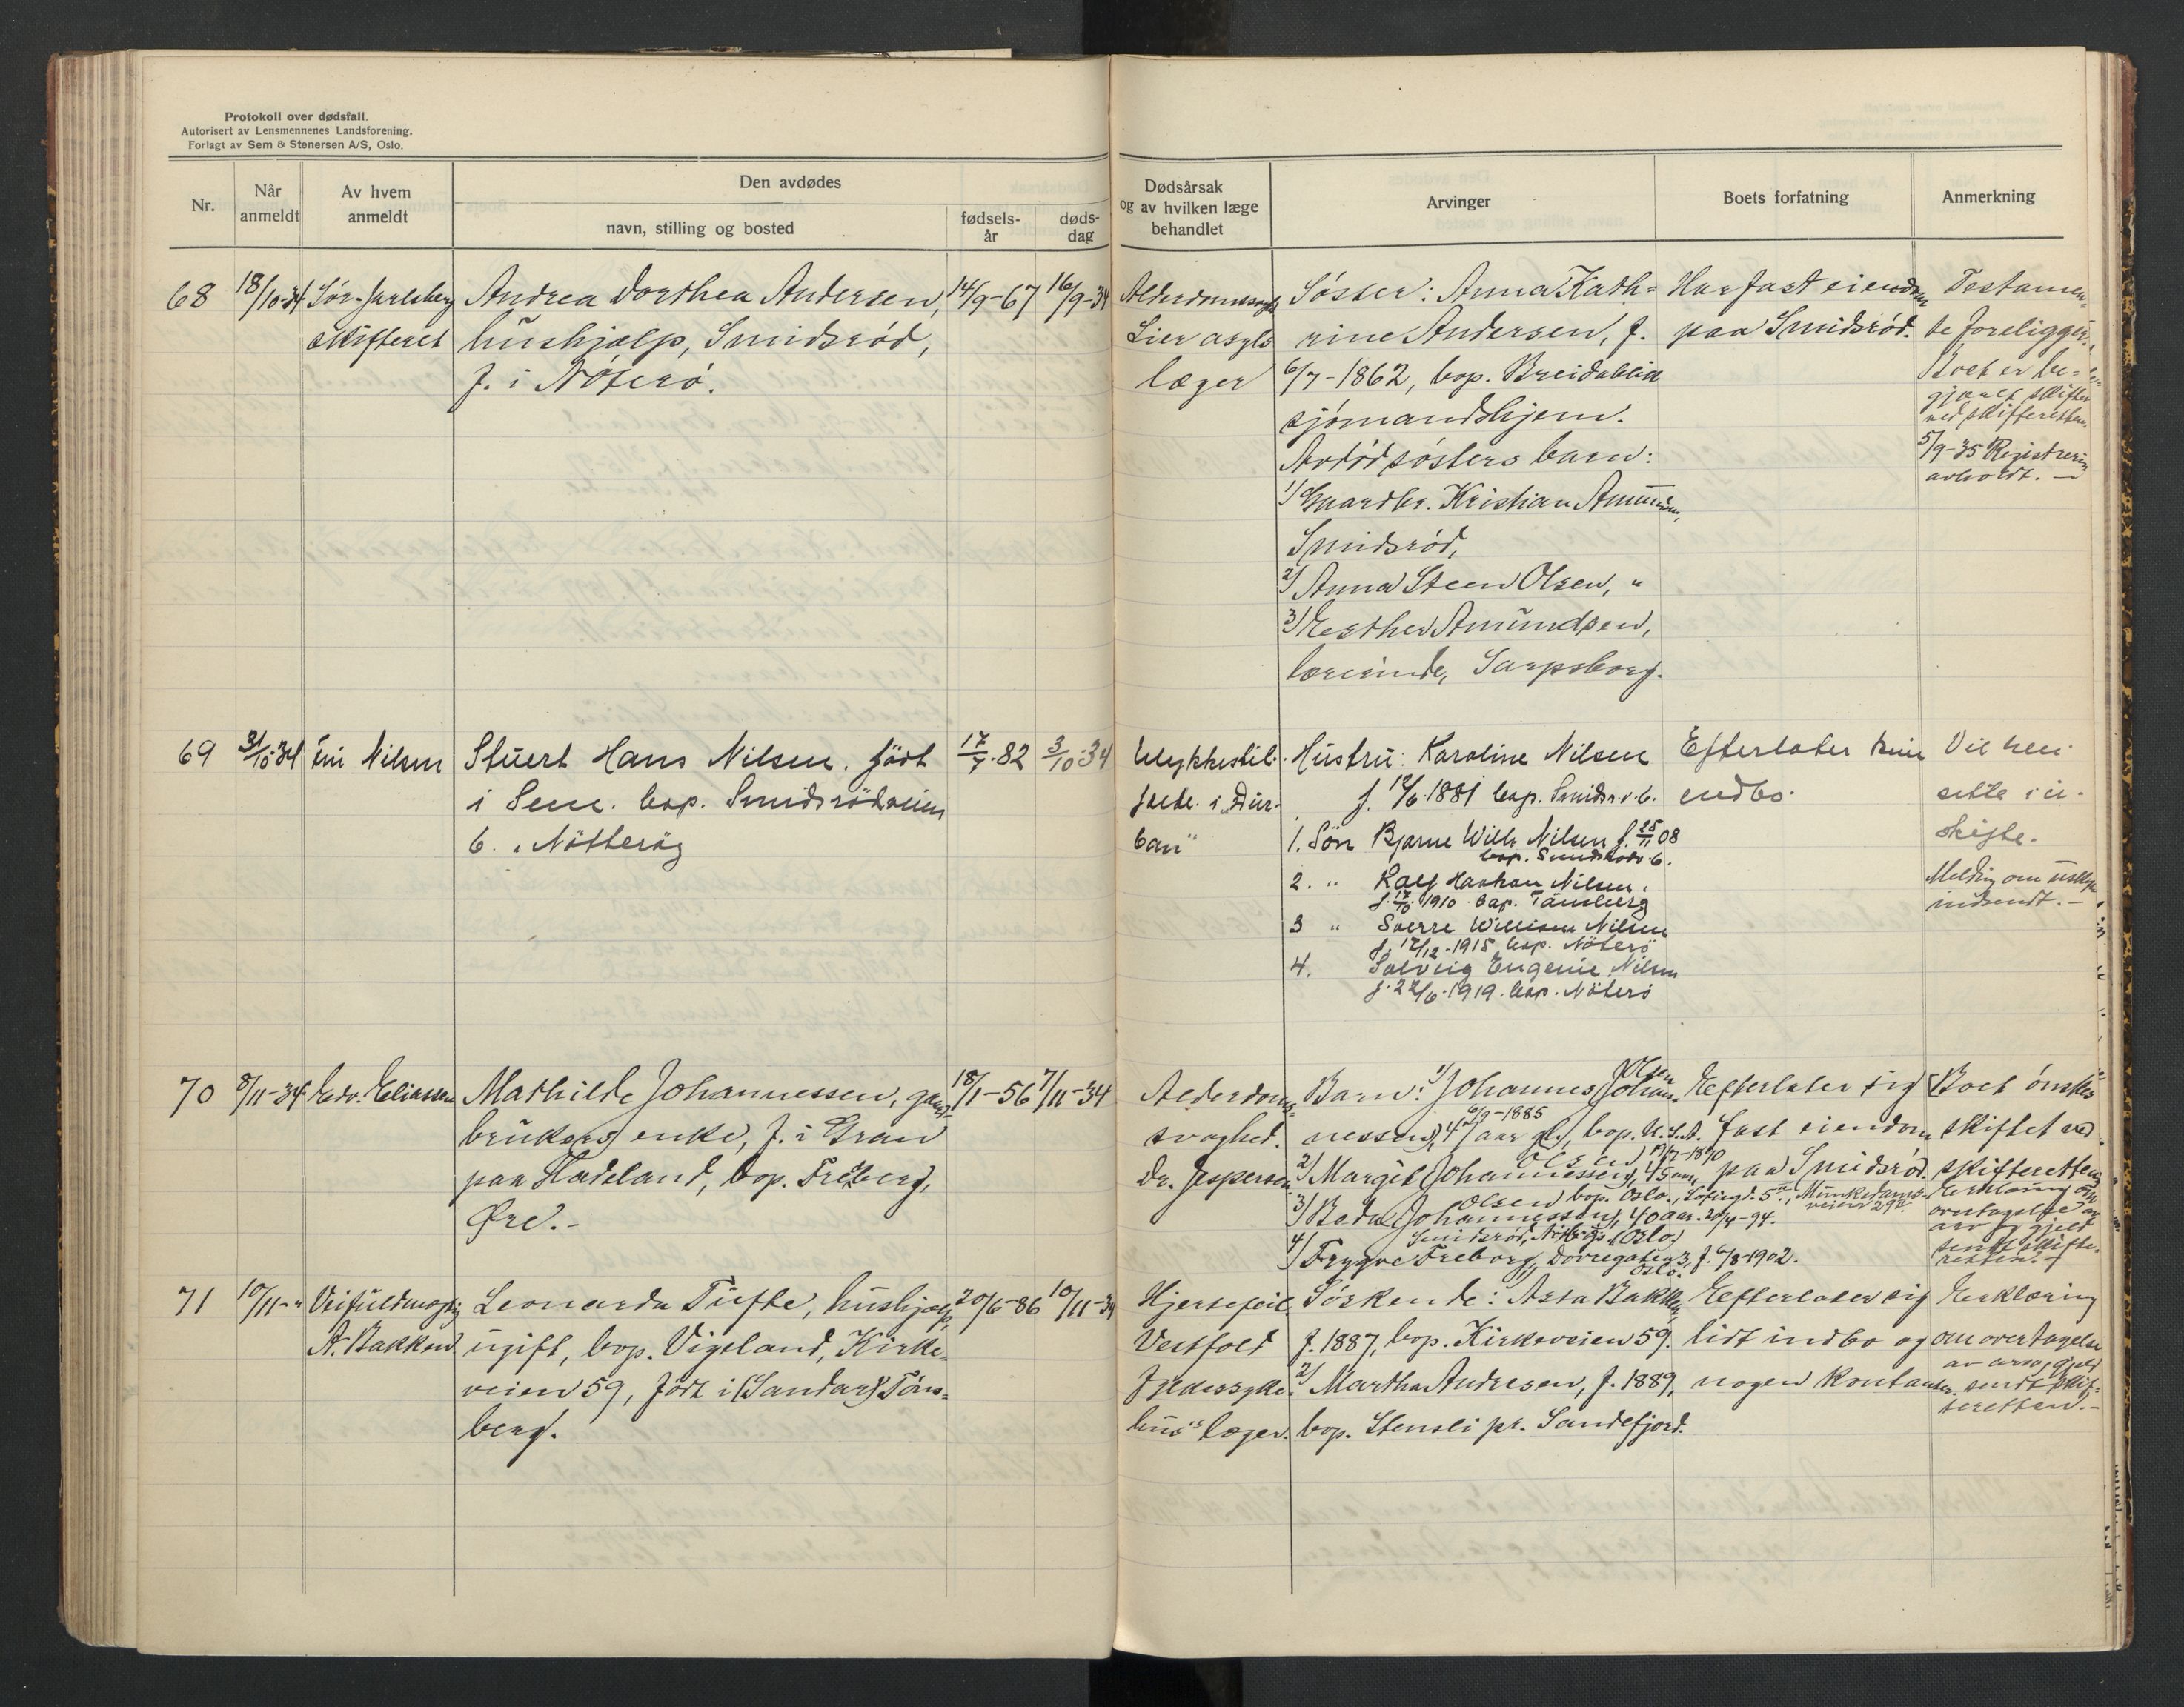 Protokoll over dødsfall.
Autorisert av Lensmennenes Landsforening.
Forlagt av Sem & Stenersen A/S, Oslo.
Nr.
Når
anmeldt
Av hvem
anmeldt
Den avdødes
navn, stilling og bosted
fødsels-
år
døds-
dag
Dødsårsak
og av hvilken læge
behandlet
Arvinger
Boets forfatning
Anmerkning
68
18/10-34
Sør-Jarlsberg
skifteret
Andrea Dorthea Andersen,
hushjælp, Smidsrød,
f. i Nøterø.
14/9-67
16/9-34
Lier asyls
læger
Søster: Anna Kath=
rine Andersen, f.
6/7-1862, bop. Breidablik
sjømandshjem.
Avdød søsters barn:
1) Gaardbr. Kristian Amundsen,
Smidsrød,
2) Anna Steen Olsen, "
3) Esther Amundsen,
lærerinde, Sarpsborg.
Har fast eiendom
paa Smidsrød.
Testamen=
te foreligger.
Boet er be=
gjæret skiftet
ved skifteretten.
5/9-35 Registrering
avholdt. —
69
31/10-34
Nilsen
Stuert Hans Nilsen. født
i Sem. bop. Smidsrødveien
6. Nøtterøy
17/7.82
3/10.34
Ulykkestil-
fælde i "Dur-
ban"
Hustru: Karoline Nilsen
f. 12/6.1881 bop. Smidsr.v.6.
1. Søn Bjarne Wilh. Nilsen f. 25/11 08
bop. Smidsrødv. 6.
2. " Ralf Haakon Nilsen.
f. 17/10. 1910 bop. Tønsberg
3 " Sverre William Nilsen
f. 17/12.1915 bop. Nøterø
4. Solveig Eugenie Nilsen
f. 22/6.1919. bop. Nøterø
Efterlater kun
indbo.
Vil hen-
sitte i u-
skifte.
Melding om uskifte
indsendt. —
70
8/11-34
Edv. Eliassen
Mathilde Johannessen, gaard-
brukers enke, f. i Gran
paa Hadeland, bop. Freberg,
Øre.-
18/1-56
7/11-34
Alderdoms=
svaghed.
Dr. Jespersen
Olsen
Barn: 1) Johannes Johan=
6/9-1885
nessen, 4 aar gl., bop. U.S.A.
Olsen
2) Margit Johannessen, 45 aar,
Olsen bop. Oslo., Sofiegd. 5
3) Johannessen, 40 aar. 20/4-94.
Smidsrød, (Oslo.)
4) Trygve Freberg, Dovregaten 3, f. 6/8-1902.
Oslo.
Efterlater sig
fast eiendom
paa Smidsrød.
Boet ønskes
skiftet ved
skifteretten
Erklæring om
overtagelse av
arv og gjeld
sendt skifte-
retten. -
71
10/11-"
Veifuldmægtig
A. Bakken
Leonarda Tufte, hushjælp,
ugift, bop. Vigeland, Kirke=
veien 59, født i (Sandar) Tøns=
berg.
20/6-86
10/11-34
Hjertefeil.
Vestfold
Fylkessyke=
hus' læger.
Søskende: Asta Bakken,
f. 1887, bop. Kirkeveien 59.
2) Martha Andresen, f. 1889,
bop. Stensli pr. Sandefjord.
Efterlater sig
lidt indbo og
nogen kontanter.
Erklæring
om overtagelse
av arv og gjeld
sendt skif=
teretten.-